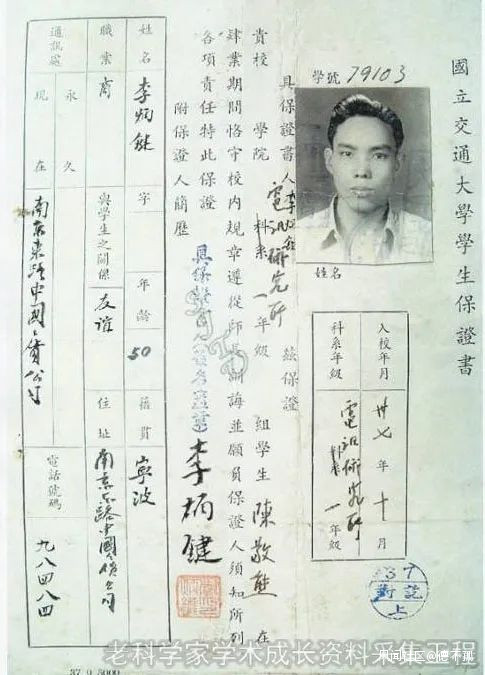 國立交通大學學生保證書
學號 79103
姓名
入校年月 卅七年十月
科系年級 電訊研究所 一年級
具保證書人李炳鍵 茲保證
貴校 學院 電訊研究所 科系 一年級 組學生 陳敬熊 在
肄業期間恪守校內規章遵從師長訓誨並願負保證人須知所列
各項責任特此保證
具保證書人 李炳鍵
附保證人簡歷
姓名 李炳鍵 字 年齡 50 籍貫 寧波
職業 商 與學生之關係 友誼 住址 南京東路中國
通訊處 永久
現在 南京東路中國 公司
電話號碼 九八四八四
37.9.5000
老科学家学术成长资料采集工程